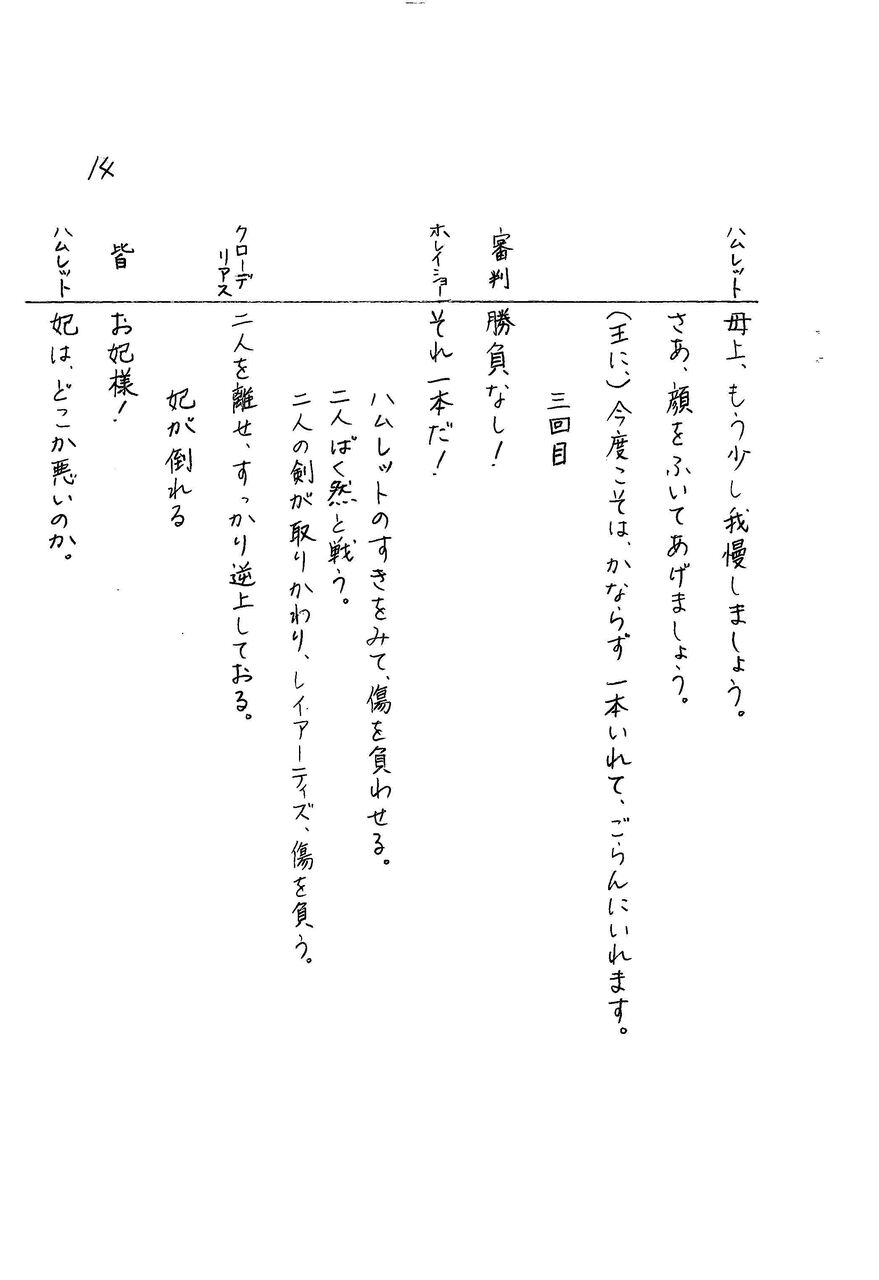 14
ハムレット 母上、もう少し我慢しましょう。
さあ、顔をふいてあげましょう。
(王に、)今度こそは、かならず一本いれて、ごらんにいれます。
三回目
審判 勝負なし!
ホレイショー それ一本だ!
ハムレットのすきをみて、傷を負わせる。
二人ばく然と戦う。
二人の剣が取りかわり、レイアーティズ、傷を負う。
クローディアス 二人を離せ、すっかり逆上しておる。
妃が倒れる
皆 お妃様!
ハムレット 妃は、どこか悪いのか。